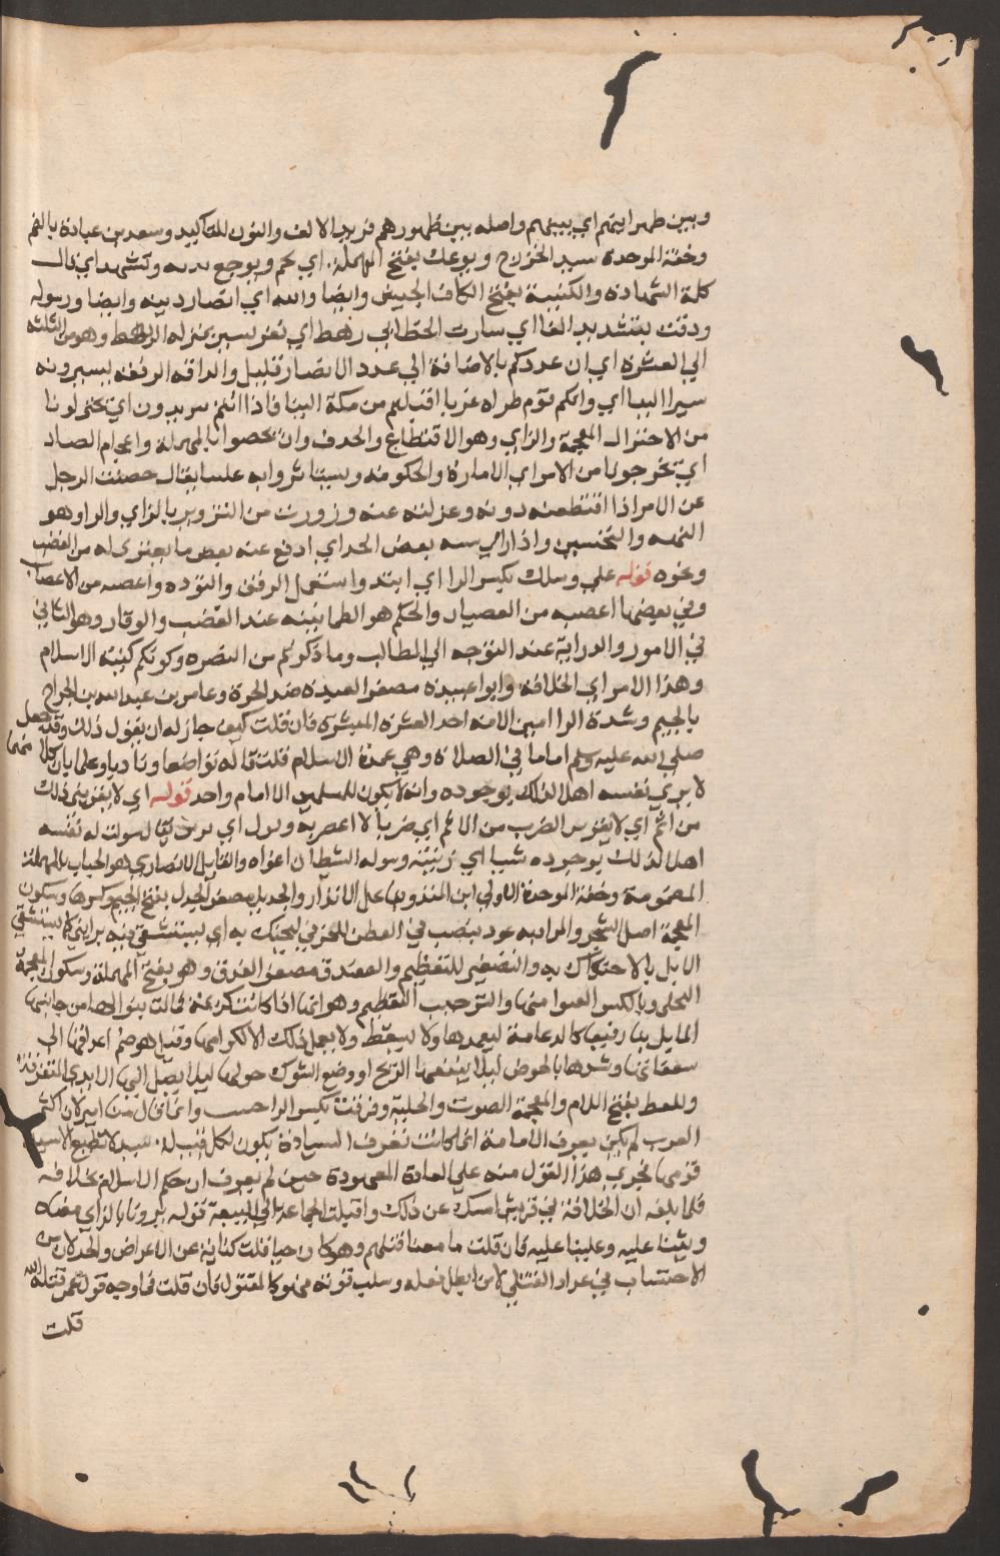 وبين ظهرانيهم اي بينهم واصله بين ظهورهم فزيد الالف والنون للتاكيد وسعد بن عبادة بالضم
وخفة الموحدة سيد الخزرج ويوعك بفتح المهملة اي يحم ويوجع بدنه وتشهد اي قال
كلمة الشهادة والكتيبة بفتح الكاف الجيش وايضا والله اي انصار دينه وايضا ورسوله
ودفت بتشديد الفا اي سارت الخطابي رهط اي نفر يسير بمنزله الرهط وهو من الثلثه
الي العشرة اي ان عددكم بالاضافة الي عدد الانصار قليل والدافه الرفقه يسيرون
سيرا لينا اي وانكم قوم طراه غربا اقبلتم من مكة الينا فاذا انتم تريدون ان يختزلونا
من الاختزال المعجمة والزاي وهو الاقتطاع والحذف وان يحصوا بالمهملة واعجام الصاد
اي تخرجونا من الامر اي الامارة والحكومه ويستاثروا به علينا يقال حضنت الرجل
عن الامر اذا اقتطعته دونه وعزلته عنه وزورت من التزوير بالزاي والراو هو
التهيه والتحسين واذا اداري منه بعض الحد اي ادفع عنه بعض ما يعتري له من الغضب
ونحوه قوله علي رسلك بكسر الرا اي اتئد واستعمل الرفق والتوده واغضبه من الاغضاب
وفي بعضها اعصيه من العصيان والحلم هو الطمانينه عند الغضب والوقار وهو التاني
في الامور والدراية عند التوجه الي المطالب وما ذكرتم من النصره وكونكم كتيبه الاسلام
وهذا الامر اي الخلافة وابو اعبيده مصغر العبيده ضد الحرة وعامر بن عبد الله بن الجراح
بالجيم وشدة الرا امين الامه احد العشره المبشره فان قلت كيف جاز له ان يقول ذلك وقد جعل
صلي الله عليه وسلم اماما في الصلاة وهي عمدة الاسلام قلت قاله تواضعا وتادبا وعلما بان كلا منهما
لا يري نفسه اهلا لذلك بوجوده وانه لا يكون للمسلمين الا امام واحد قوله اي لا يقربني ذلك
من اثم اي لا يقرب الضرب من الاثم اي ضربا لا اعصي به وتسول اي تزين يقال سولت له نفسه
اهلا لذلك بوجوده شيا اي زينته وسوله الشيطان اغواه والقايل الانصاري هو الحباب بالمهملة
المضمومة وخفة الموحدة الاولي ابن المنذر والجذيل مصغر الجذل بفتح الجيم وكسرها وسكون
المعجمة اصل الشجر والمراد به عود ينصب في العطن للجربي لتحتك به اي يستشفي فيه برايي كما تستشفي
الابل بالاحتكاك به والتصغير للتعظيم والعذيق مصغر العذق وهو بفتح المهملة وسكون المعجمة
النخل وبالكسر القنو منها والترجيب التعظيم وهو انها اذا كانت كريمة فمالت بنوا لها من جانبها
المايل بنا رفيعا كالدعامة ليعمدها ولا يسقط ولا يعمل ذلك الا لكرامها وقيل هو ضم اعذاقها الي
سعفاتها وشدها بالخوص ليلا ينفضها الريح او وضع الشوك حولها ليلا يصل اليها الايدي المتفرقة
واللغط بفتح اللام والمعجمة الصوت والجلبة وفرقت بكسر الرا خشيت وانما قال منا امير لان اكثر
العرب لم يكن يعرف الامامة انما كانت تعرف السيادة يكون لكل قبيلة سيد لا تطيع الا سيد
قومها فجري هذا القول منه علي العادة المعهودة حين لم يعرف ان حكم الاسلام بخلافه
فلما بلغه ان الخلافة في قريش امسك عن ذلك واقبلت الجماعة الي البيعة قوله نزونا بالزاي معناه
وثبنا عليه وغلبنا عليه فان قلت ما معنا قتلتم وهو كان حيا قلت كناية عن الاعراض والخذلان
الاحتساب في عداد القتلي لان من ابطل فعله وسلب قوته فهو كالمقتول فان قلت فما وجه قول عمر قتله الله
قلت